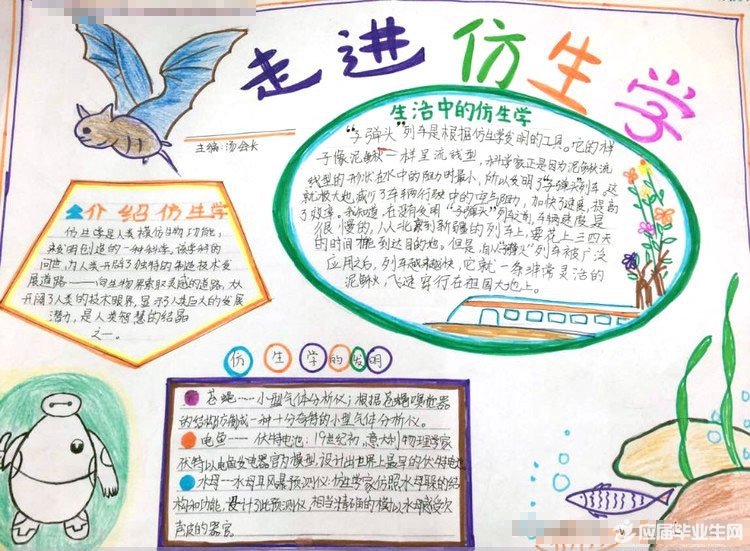 走进仿生学
主编：汤会长
生活中的仿生学
“子弹头”列车是根据仿生学发明的工具。它的样
子像泥鳅一样呈流线型，科学家正是因为泥鳅流
线型的形状在水中的阻力最小，所以发明了“子弹头”列车。这
就极大地减少了车辆行驶中的空气阻力，加快了速度，提高
了效率。我知道，在没有发明“子弹头”列车之前，车辆速度是
很慢的，从北京到新疆的列车上，要花上三四天
的时间才能到达目的地。但是，自从“子弹头”列车被广泛
应用之后，列车越来越快，它就一条非常灵活的
泥鳅，飞速穿行在祖国大地上。
介绍仿生学
仿生学是人类模仿生物功能，
来发明创造的一种科学。该学科的
问世，为人类开辟了独特的制造技术发
展道路——向生物界索取灵感的道路，大
开阔了人类的技术眼界，显示了人类巨大的发展
潜力，是人类智慧的结晶
之一。
仿生学的发明
苍蝇——小型气体分析仪：根据苍蝇嗅觉器
的结构仿制成一种十分奇特的小型气体分析仪。
电鱼——伏特电池：19世纪初，意大利物理学家
伏特以电鱼发电器官为模型，设计出世界上最早的伏特电池
水母—水母耳风暴预测仪：仿生学家仿照水母耳的结
构和功能，设计了此预测仪，相当精确的模拟水母感受次
声波的器官。
应届毕业生网